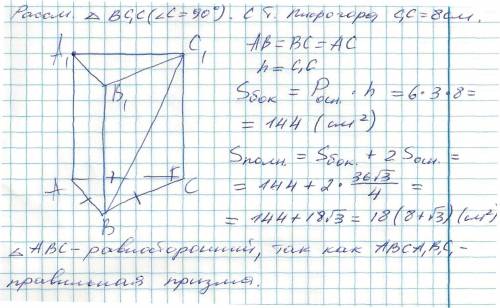 Рассм. △ BC₁C (∠C = 90°). С т. Пифагора C₁C = 8 см.
AB = BC = AC
h = C₁C
Sбок = Pосн. · h = 6·3·8 =
= 144 (см²)
Sполн. = Sбок. + 2 Sосн. =
= 144 + 2 · 36√3/4 =
= 144 + 18√3 = 18(8+√3) (см²)
A₁
C₁
B₁
A
C
B
△ ABC – равносторонний, так как ABCA₁B₁C₁ –
правильная призма.